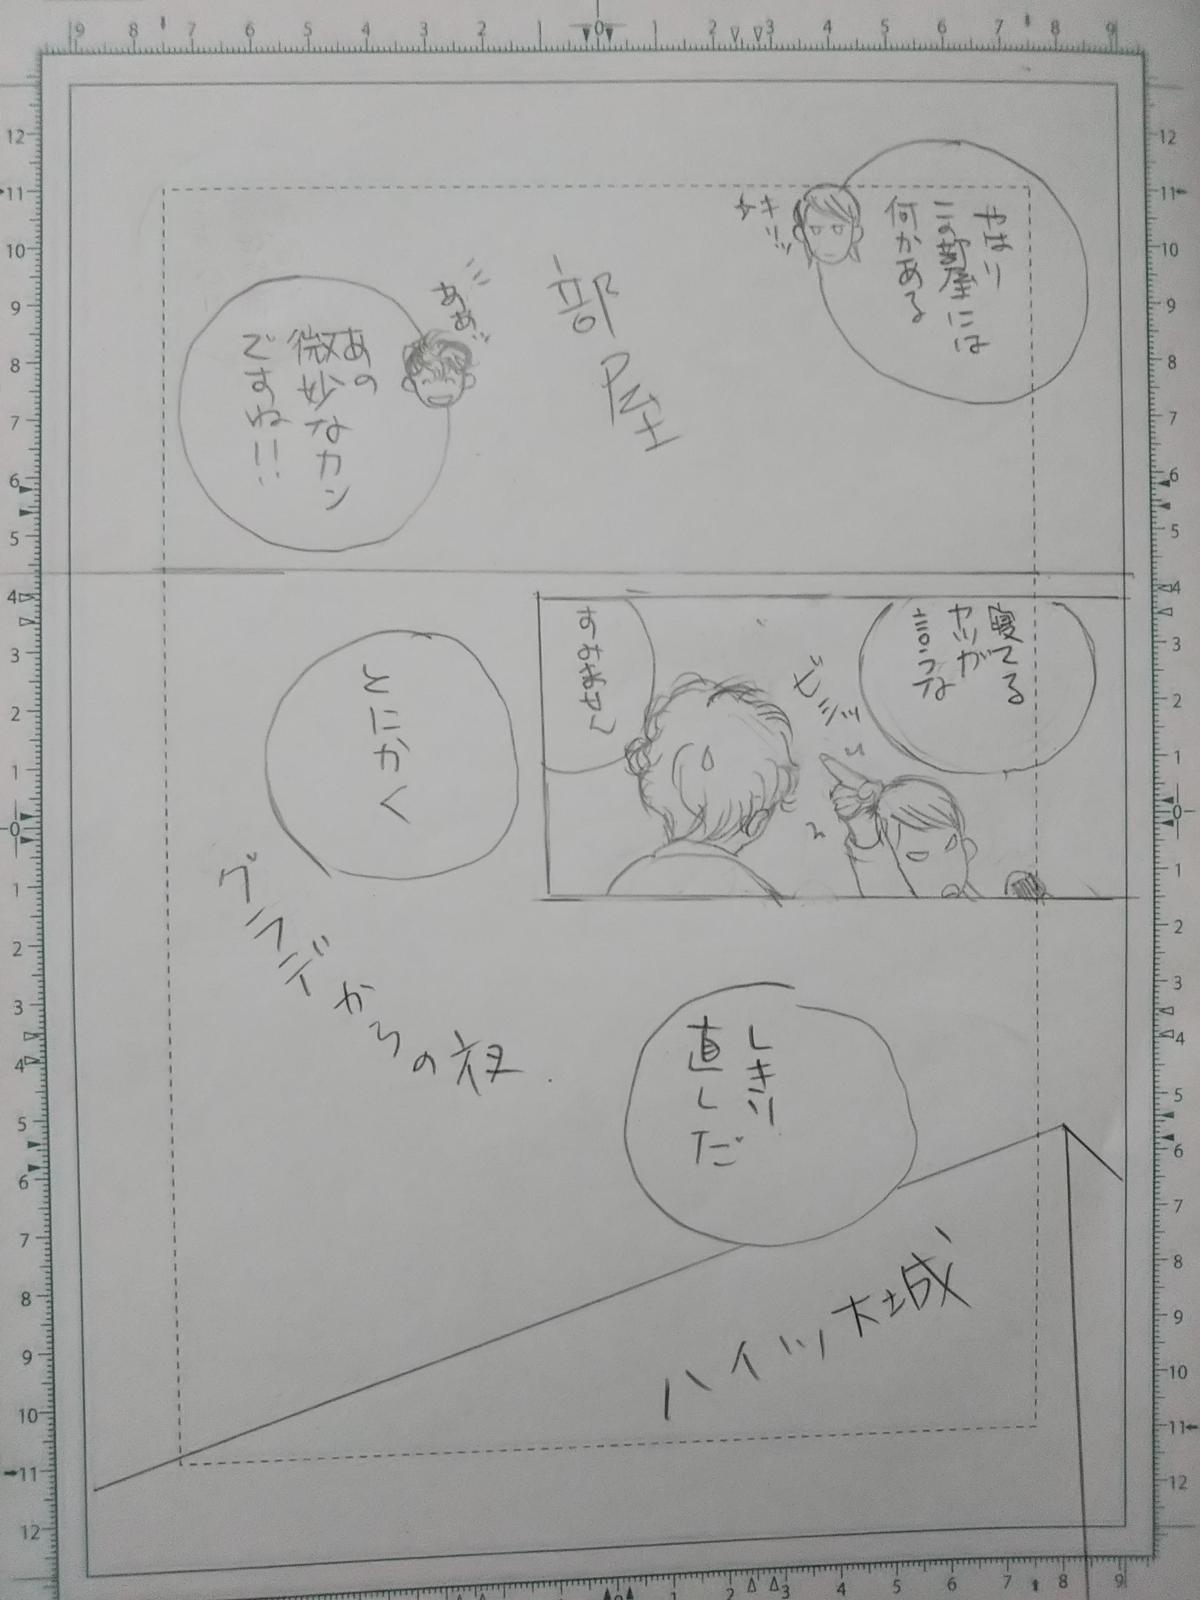 やはり
この部屋には
何かある
キリッ
部屋
ああ!!
あの
微妙なカン
ですね!!
寝てる
ヤツが
言うな
ビシッ
すみません
とにかく
グラデからの夜
しきり
直しだ
ハイツ大城